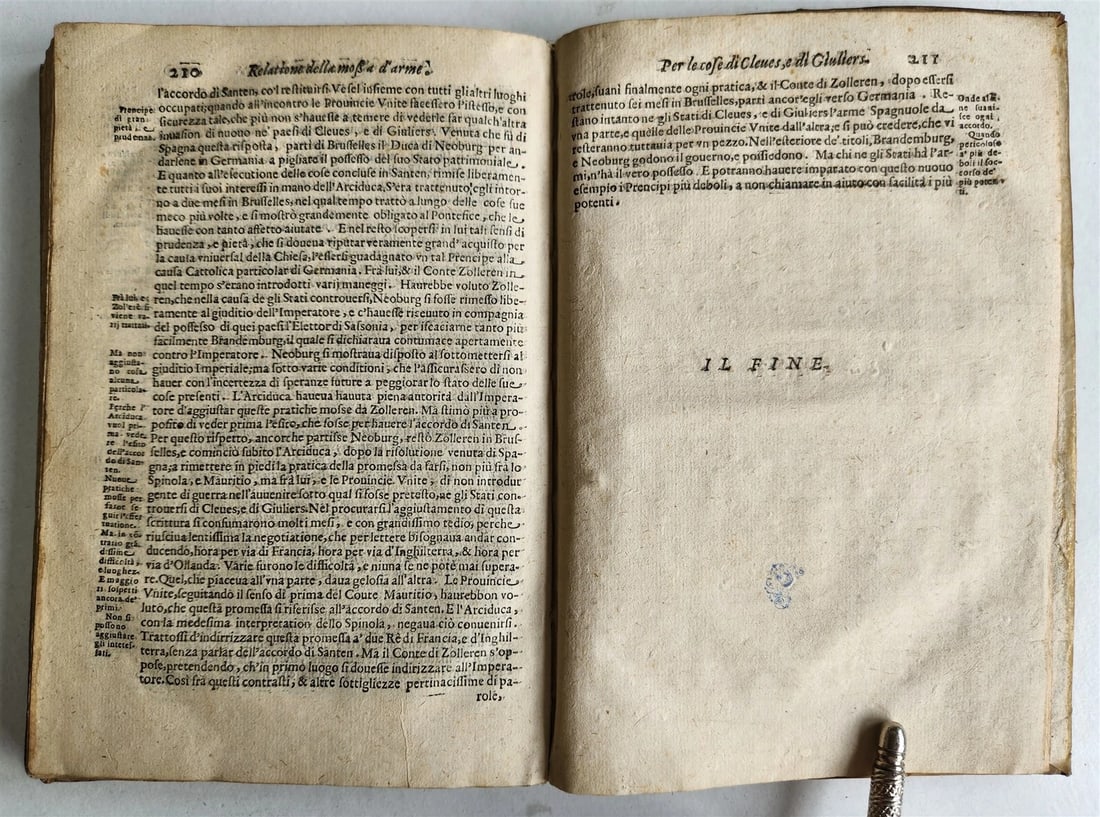 210 Relatione della mossa d'arme.
l'accordo di Santen, co'l restituirsi Vesel insieme con tutti gli altri luoghi
occupati; quando all'incontro le Prouincie Vnite facessero l'istesso, e con
sicurezza tale, che più non s'hauesse a temere di vederle far qualch'altra
inuasion di nuouo ne' paesi di Cleues, e di Giuliers. Venuta che fù di
Spagna questa risposta, partì di Brusselles il Duca di Neoburg per an-
darsene in Germania a pigliare il possesso del suo Stato patrimoniale.
E quanto all'essecutione delle cose concluse in Santen, rimise liberamen-
te tutti i suoi interessi in mano dell'Arciduca. S'era trattenuto egli intor-
no a due mesi in Brusselles, nel qual tempo trattò a lungo delle cose sue
meco più volte, e si mostrò grandemente obligato al Pontefice, che le
hauesse con tanto affetto aiutate. E nel resto scopersi in lui tali sensi di
prudenza, e pietà, che si doueua riputar veramente grand'acquisto per
la causa vniuersal della Chiesa, l'essersi guadagnato vn tal Prencipe alla
causa Cattolica particolar di Germania. Frà lui, & il Conte Zolleren in
quel tempo s'erano introdotti varij maneggi. Haurebbe voluto Zolle-
ren, che nella causa de gli Stati controuersi, Neoburg si fosse rimesso libe-
ramente al giuditio dell'Imperatore, e c'hauesse riceuuto in compagnia
del possesso di quei paesi l'Elettor di Sassonia, per iscacciarne tanto più
facilmente Brandemburg, il quale si dichiaraua contumace apertamente
contro l'Imperatore. Neoburg si mostraua disposto al sottomettersi al
giuditio Imperiale; ma sotto varie conditioni, che l'assicurassero di non
hauer con l'incertezza di speranze future a peggiorar lo stato delle sue
cose presenti. L'Arciduca haueua hauuta piena autorità dall'Impera-
tore d'aggiustar queste pratiche mosse da Zolleren. Ma stimò più a pro-
posito di veder prima l'esito, che fosse per hauere l'accordo di Santen.
Per questo rispetto, ancorche partisse Neoburg, restò Zolleren in Brus-
selles, e cominciò subito l'Arciduca, dopo la risolutione venuta di Spa-
gna, a rimettere in piedi la pratica della promessa da farsi, non più frà lo
Spinola, e Mauritio, ma frà lui, e le Prouincie Vnite, di non introdur
gente di guerra nell'auuenire sotto qual si fosse pretesto, ne gli Stati con-
trouersi di Cleues, e di Giuliers. Nel procurarsi l'aggiustamento di questa
scrittura si consumarono molti mesi, e con grandissimo tedio, perche
riusciua lentissima la negotiatione, che per lettere bisognaua andar con-
ducendo, hora per via di Francia, hora per via d'Inghilterra, & hora per
via d'Ollanda. Varie furono le difficoltà, e niuna se ne potè mai supera-
re. Quel, che piaceua all'vna parte, daua gelosia all'altra. Le Prouincie
Vnite, seguitando il senso di prima del Conte Mauritio, haurebbon vo-
luto, che questa promessa si riferisse all'accordo di Santen. E l'Arciduca,
con la medesima interpretation dello Spinola, negaua ciò conuenirsi.
Trattossi d'indirrizzare questa promessa a' due Rè di Francia, e d'Inghil-
terra, senza parlar dell'accordo di Santen. Ma il Conte di Zolleren s'op-
pose, pretendendo, ch'in primo luogo si douesse indirizzare all'Impera-
tore. Così frà questi contrasti, & altre sottigliezze pertinacissime di pa-
role,
Prencipe
di gran
pietà, e
prudenza.
Frà lui, e
Zol'erē si
viene va-
rij trattati.
Ma non
aggiusta-
no cosa
alcuna
particola-
re.
Perche l'
Arciduca
vuol pri-
ma vede-
re l'esito
dell'accor
do di San-
ten.
Nuoue
pratiche
mosse per
farne se-
guir l'effet
tuatione.
Ma in cō
trario grā
dissime
difficoltà,
e lunghez.
E maggio
ri sospetti
ancora de'
primi.
Non si
possono
aggiustare
gli interes-
sati.
Per le cose di Cleues, e di Giuliers. 211
role, suanì finalmente ogni pratica, & il Conte di Zolleren, dopo essersi
trattenuto sei mesi in Brusselles, partì ancor'egli verso Germania. Re-
stano intanto ne gli Stati di Cleues, e di Giuliers l'arme Spagnuole da
vna parte, e quelle delle Prouincie Vnite dall'altra; e si può credere, che vi
resteranno tuttauia per vn pezzo. Nell'esteriore de' titoli, Brandemburg,
e Neoburg godono il gouerno, e possiedono. Ma chi ne gli Stati hà l'ar-
mi, n'hà il vero possesso. E potranno hauere imparato con questo nuouo
esempio i Prencipi più deboli, a non chiamare in aiuto con facilità i più
potenti.
Onde alfi-
ne suani-
sce ogni
accordo.
Quando
pericoloso
a' più de-
boli il soc-
corso de'
più poten
ti.
IL FINE.